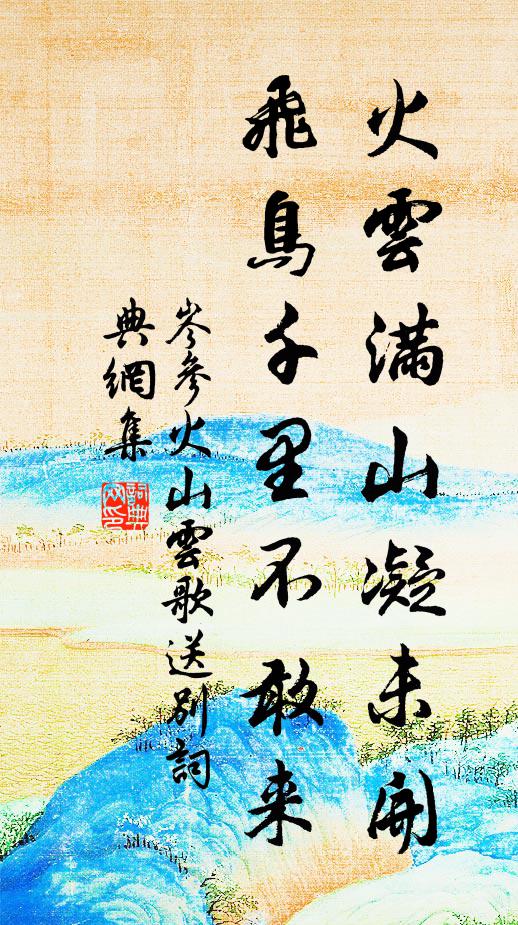 火雲滿山凝未開
飛鳥千里不敢来
岑參火山雲歌送別詞
典網集
詞典
网印